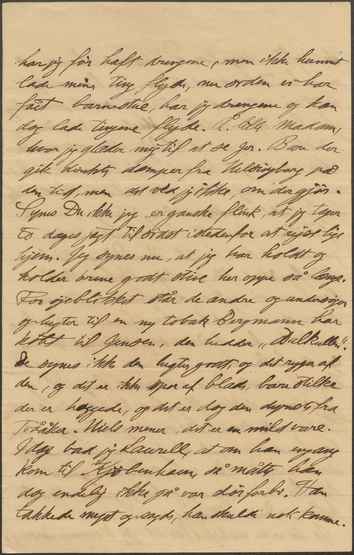 har jeg før haft drengene, men ikke kunnet
lade mine ting flyde, nu orden vi har
fået barnestue, har jeg drengene og kan
dog lade tingene flyde. Madam,
hvor jeg glæder mig til at se jer. Bare der
gik direkte damper fra Helsingborg på
den tid, men det ved jeg ikke, om der gjør.
Synes Du ikke jeg er ganske flink, at jeg tager
to dages jagt til først istedenfor at rejse lige
hjem. Jeg synes nu, at jeg har holdt og
holder ørene godt stive her oppe så længe.
For øjeblikket står de andre og undersøger
og lugter til en ny tobak Bergmann har
købt til Jensen, den hedder "Dalkulla".
De synes ikke den lugter godt, og det ryger af
den, og det er ikke spor af blade, bare stilke
der er høvlede, og det er dog den dyreste fra
Niels mener, det er en mild vare.
I dag bad jeg Laurell, at om han engang
kom til Kjøbenhavn, så måtte han
dog endelig ikke gå vor dør forbi. Han
takkede meget og sagde, han skulde nok komme.